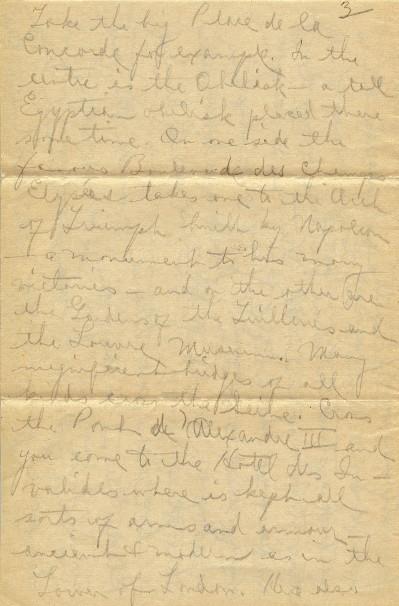 3
Take the big Place de la
Concorde for example. In the
centre is the Obelisk – a tall
Egyptian obelisk placed there
some time. On one side the
famous Boulevarde des Champs
Elysees takes one to the Arch
of Triumph built by Napoleon
– a monument to his many
victories – and on the other are
the Gardens of the Tuilleries and
the Louvre Museum. Many
magnificent bridges of all
kinds cross the Seine. Cross
the Pont de Alexandre III and
you come to the Hotel des In-
valides where is kept all
sorts of arms and armour
ancient & modern as in the
Tower of London. Here also